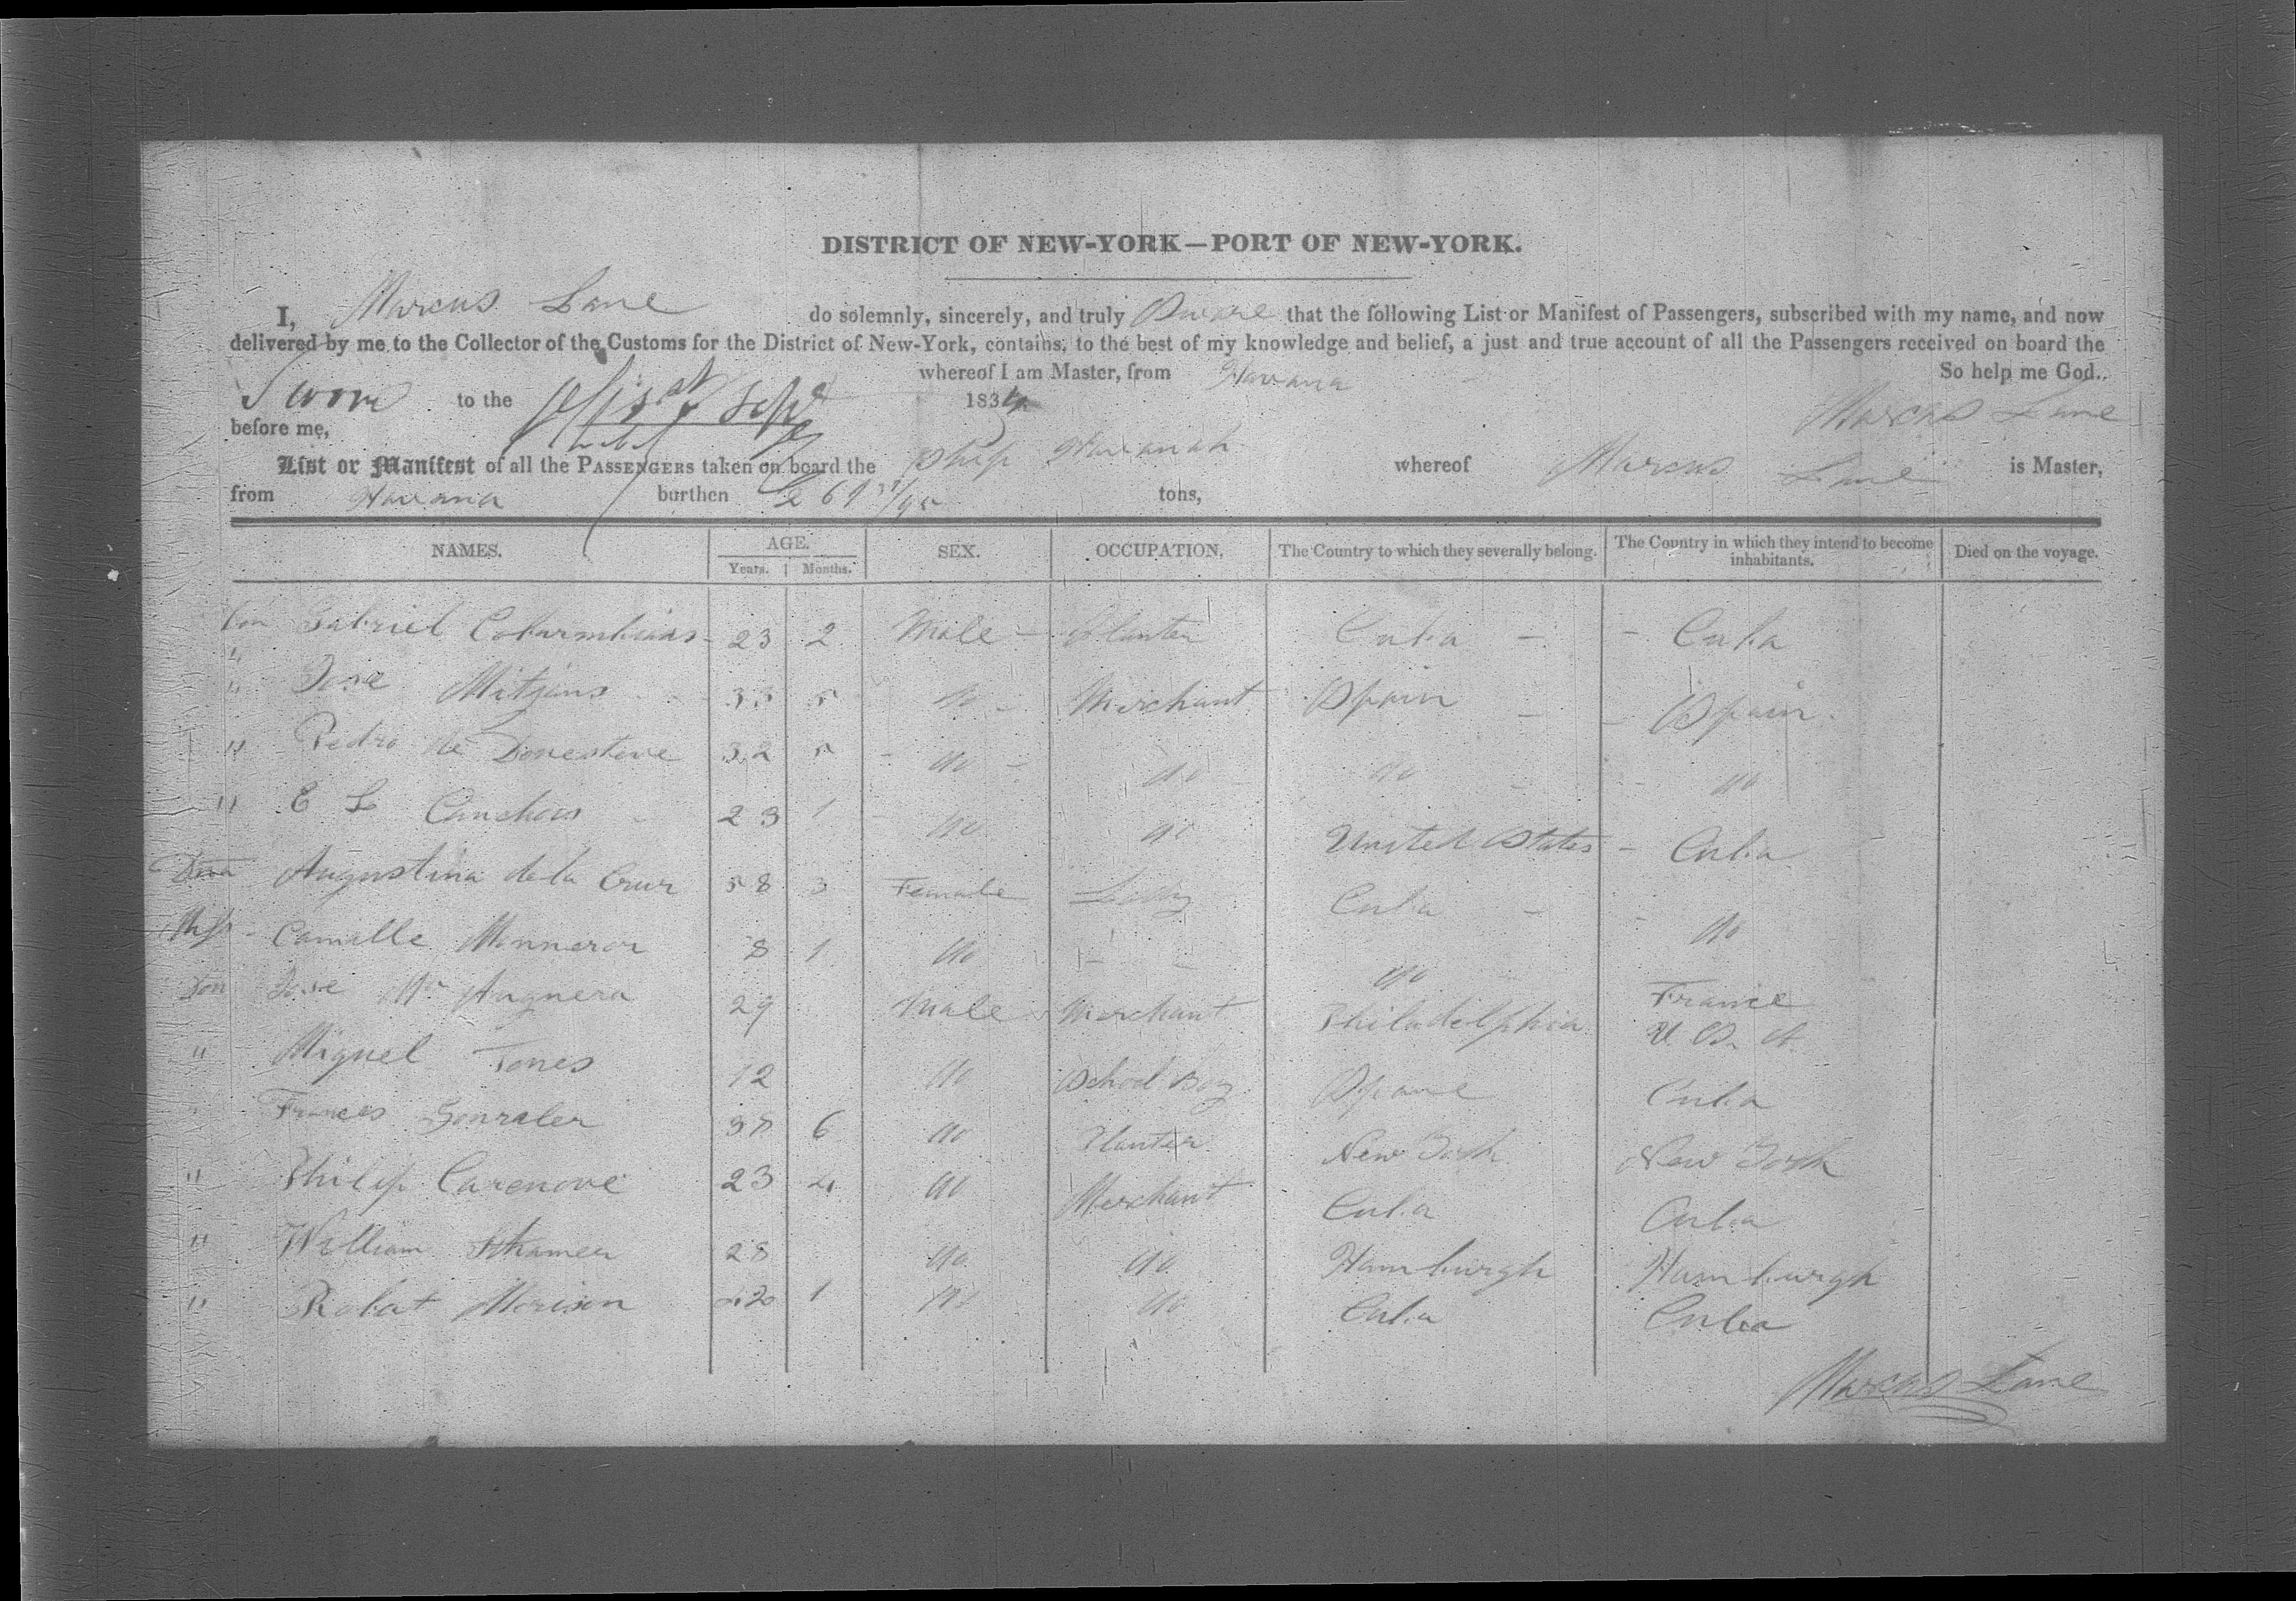 DISTRICT OF NEW-YORK—PORT OF NEW-YORK.
I, Marcus Lane do solemnly, sincerely, and truly Swear that the following List or Manifest of Passengers, subscribed with my name, and now
delivered by me to the Collector of the Customs for the District of New-York, contains, to the best of my knowledge and belief, a just and true account of all the Passengers received on board the
whereof I am Master, from Havana So help me God.
Sworn to the 1834
before me, Marcus Lane
List or Manifest of all the PASSENGERS taken on board the Ship Havanah whereof Marcus Lane is Master,
from Havana burthen tons,
NAMES. AGE. SEX. OCCUPATION. The Country to which they severally belong. The Country in which they intend to become inhabitants. Died on the voyage.
Years. Months.
Don Gabriel 23 2 Male Planter Cuba - - Cuba
" Jose Mitjans 33 5 do Merchant Spain - - Spain
" Pedro de Donesteve 32 5 do do do do
" E L 23 1 do do United States - Cuba
Dna Augustina de la Cruz 58 3 Female Lady Cuba - - do
Miss Camille Monneror 8 1 do - - do France
Don Jose Ma Anguera 29 Male Merchant Philadelphia U. S. A.
" Miguel Tones 12 do School Boy Spane Cuba
" Frances Gonzalez 6 do Planter New York New York
" Philip Carenove 23 4 do Merchant Cuba Cuba
" William 28 do do Hamburgh Hamburgh
" Robat Morison 1 do do Cuba Cuba
Marcus Lane